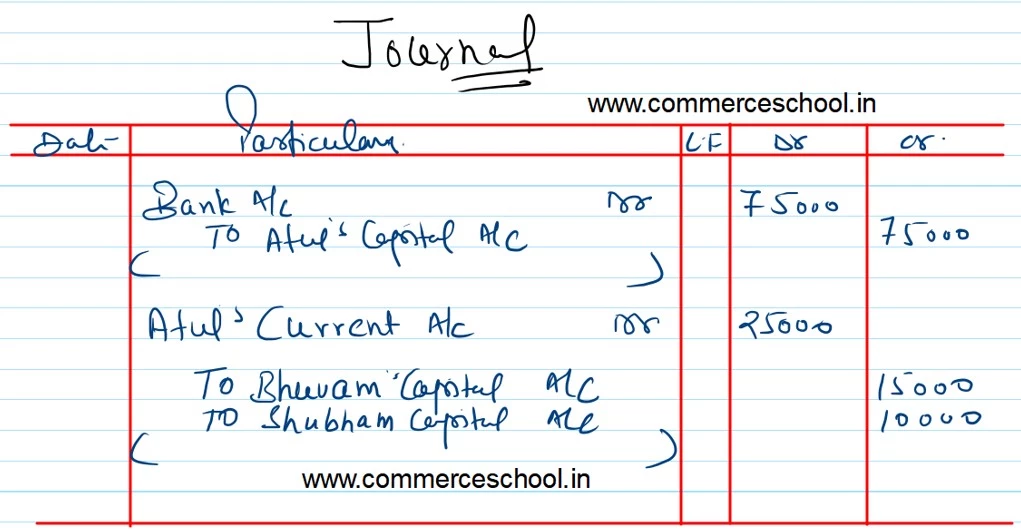 Journal
www.commerceschool.in
Date Particulars L.F Dr Cr.
Bank A/c Dr 75000
To Atul's Capital A/c 75000
( )
Atul's Current A/c Dr 25000
To Bhuvam's Capital A/c 15000
To Shubham Capital A/c 10000
( )
www.commerceschool.in